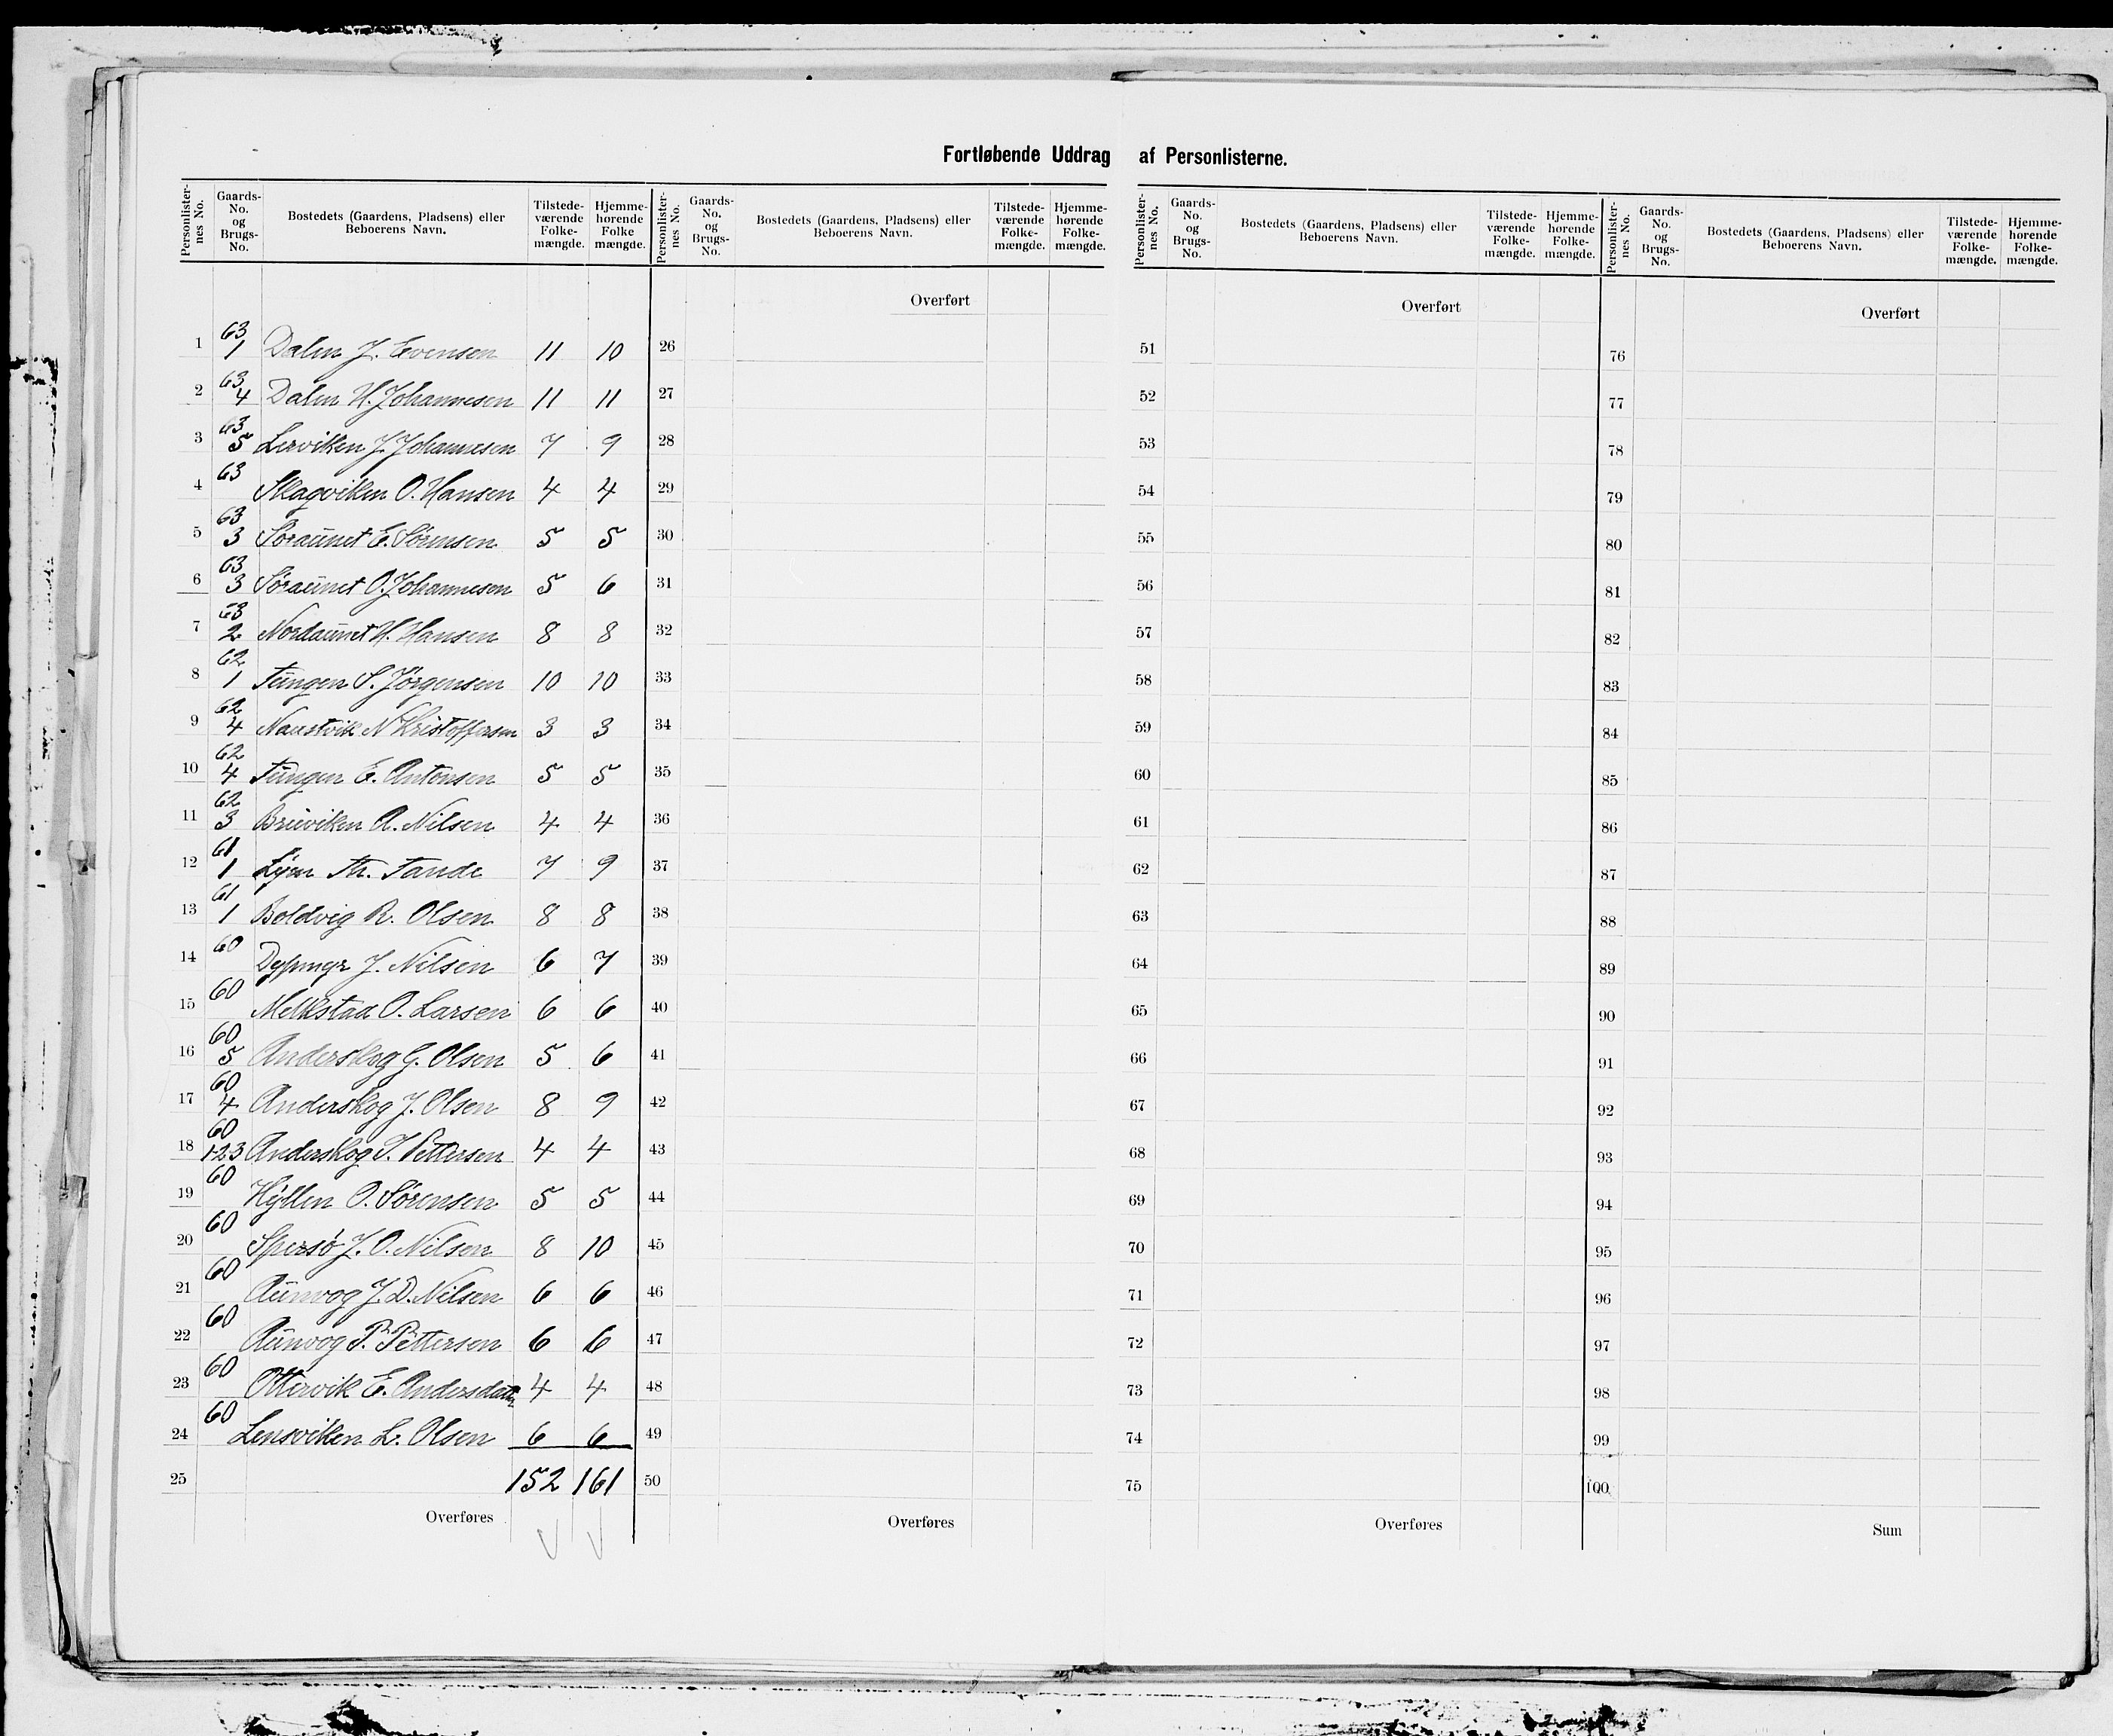 Fortløbende Uddrag af Personlisterne.
Personlisternes No. Gaards-No. og Brugs-No. Bostedets (Gaardens, Pladsens) eller Beboerens Navn. Tilstedeværende Folkemængde. Hjemmehørende Folke mængde.
Personlisternes No. Gaards-No. og Brugs-No. Bostedets (Gaardens, Pladsens) eller Beboerens Navn. Tilstedeværende Folkemængde. Hjemmehørende Folkemængde.
Personlisternes No. Gaards-No. og Brugs-No. Bostedets (Gaardens, Pladsens) eller Beboerens Navn. Tilstedeværende Folkemængde. Hjemmehørende Folkemængde.
Personlisternes No. Gaards-No. og Brugs-No. Bostedets (Gaardens, Pladsens) eller Beboerens Navn. Tilstedeværende Folkemængde. Hjemmehørende Folkemængde.
Overført Overført Overført
1 63/1 Dalen J. Evensen 11 10 26 51 76
2 63/4 Dalen H. Johannesen 11 11 27 52 77
3 63/5 Lerviken J. Johannesen 7 9 28 53 78
4 63 Skagviken O. Hansen 4 4 29 54 79
5 63/3 Søraunet E. Sørensen 5 5 30 55 80
6 63/3 Søraunet O. Johannesen 5 6 31 56 81
7 63/2 Nordaunet H. Hansen 8 8 32 57 82
8 62/1 Tungen S. Jørgensen 10 10 33 58 83
9 62/4 Naustvik N Kristoffersen 3 3 34 59 84
10 62/4 Tungen E. Antonsen 5 5 35 60 85
11 62/3 Bruviken A. Nilsen 4 4 36 61 86
12 61/1 Lyen Th. Tande 7 9 37 62 87
13 61/1 Boldvig R. Olsen 8 8 38 63 88
14 60 J. Nilsen 6 7 39 64 89
15 60 Melkstad O. Larsen 6 6 40 65 90
16 60/5 Anderskog G. Olsen 5 6 41 66 91
17 60/4 Anderskog J. Olsen 8 9 42 67 92
18 60/1-2-3 Anderskog T. Pettersen 4 4 43 68 93
19 60 Hyllen O. Sørensen 5 5 44 69 94
20 60 Spersø J. O. Nilsen 8 10 45 70 95
21 60 Aunvog J. D. Nilsen 6 6 46 71 96
22 60 Aunvog P. Pettersen 6 6 47 72 97
23 60 Ottervik E. Andersdatter 4 4 48 73 98
24 60 Lensviken L. Olsen 6 6 49 74 99
25 152 161 50 75 100
Overføres Overføres Overføres Sum